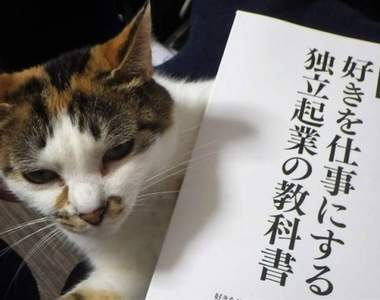 好きを仕事にする
独立起業の教科書
好き